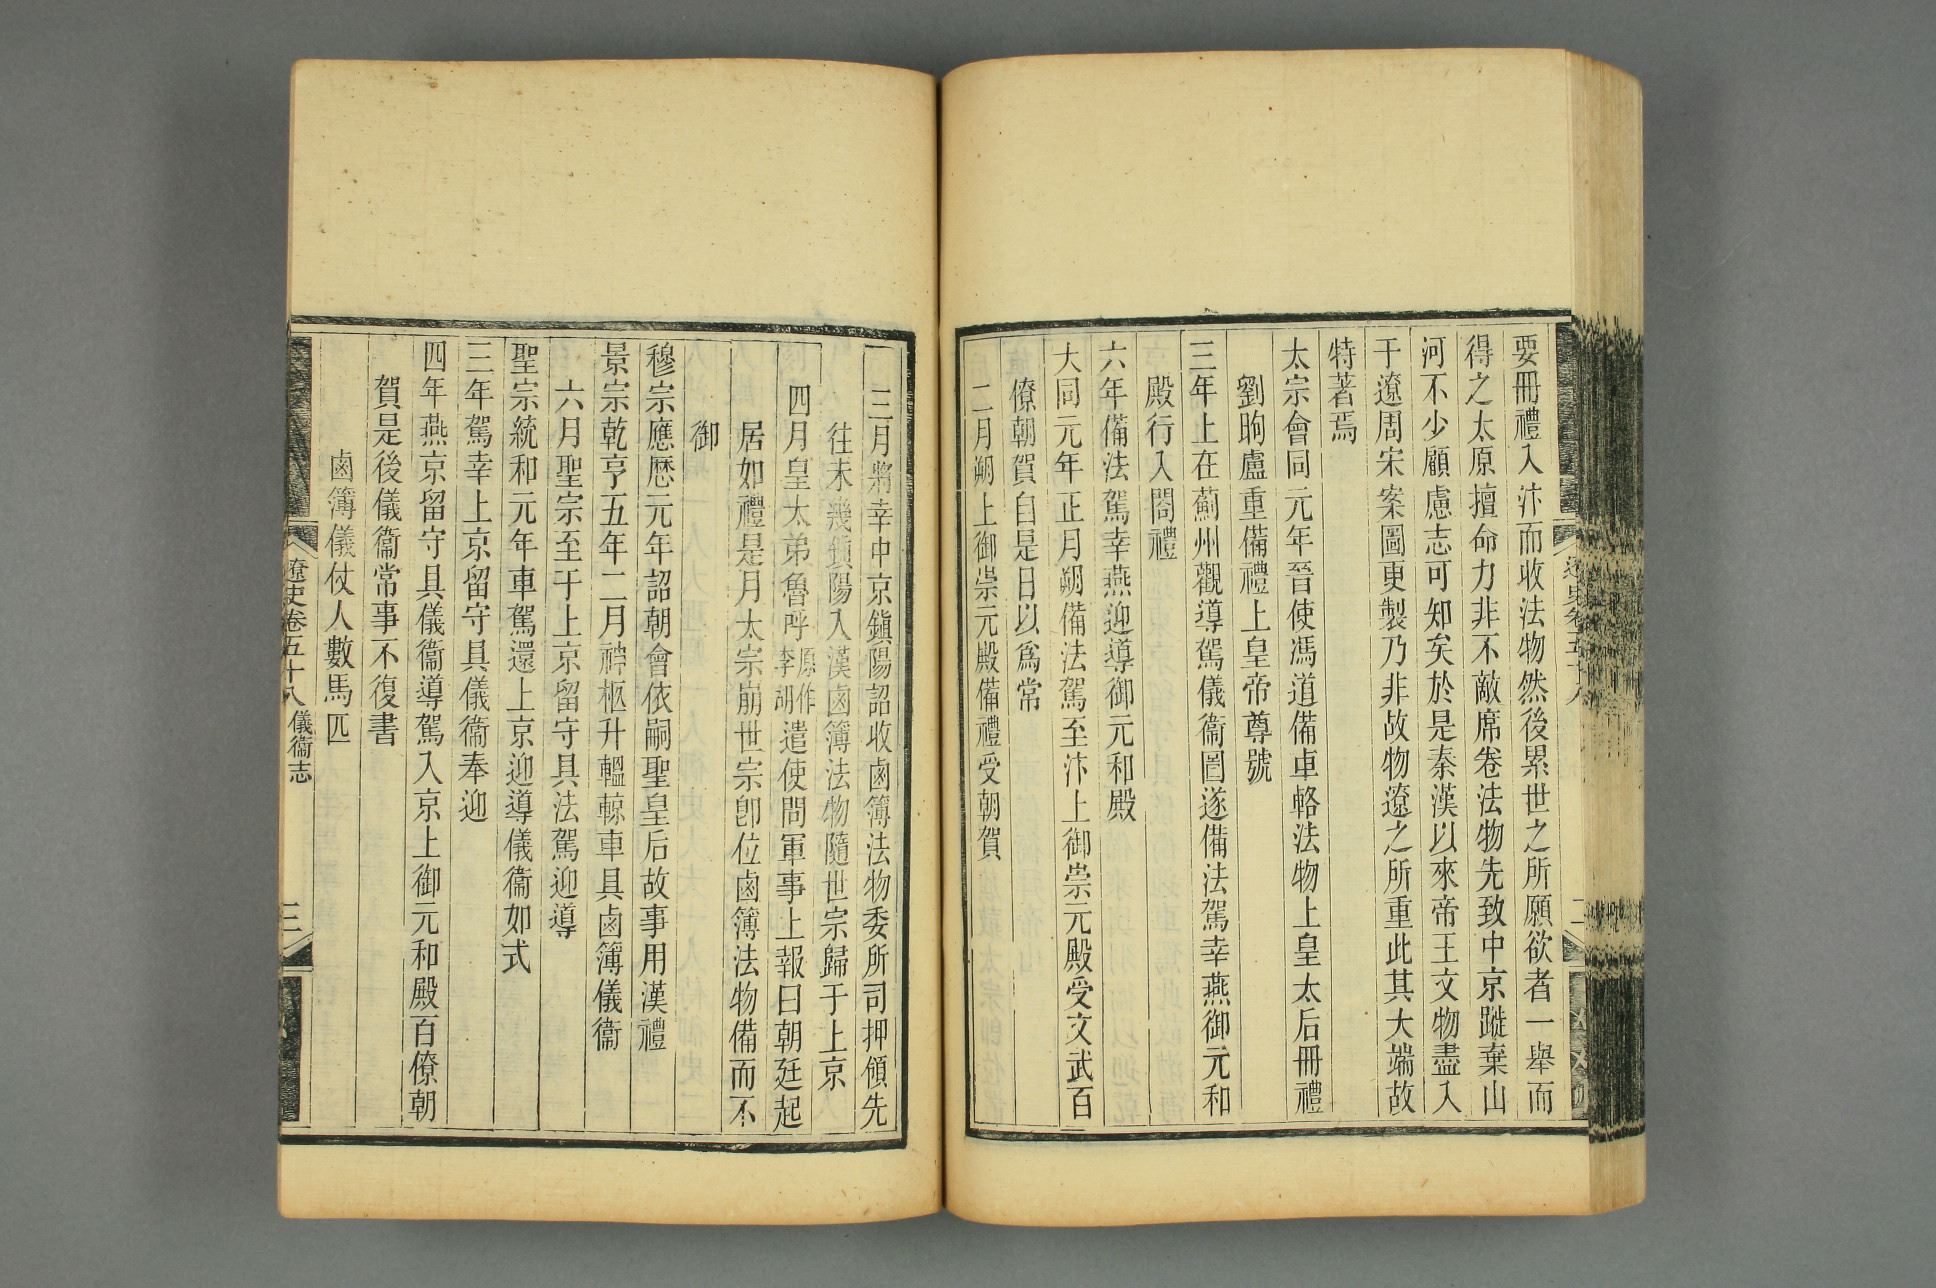 要冊禮入汴而收法物然後累世之所願欲者一舉而
得之太原擅命力非不敵席卷法物先致中京蹝棄山
河不少顧慮志可知矣於是秦漢以來帝王文物盡入
于遼周宋案圖更製乃非故物遼之所重此其大端故
特著焉
太宗會同元年晉使馮道備車輅法物上皇太后冊禮
劉昫盧重備禮上皇帝尊號
三年上在薊州觀導駕儀衞圖遂備法駕幸燕御元和
殿行入閤禮
六年備法駕幸燕迎導御元和殿
大同元年正月朔備法駕至汴上御崇元殿受文武百
僚朝賀自是日以爲常
二月朔上御崇元殿備禮受朝賀
三月將幸中京鎭陽詔收鹵簿法物委所司押領先
往未幾鎭陽入漢鹵簿法物隨世宗歸于上京
四月皇太弟魯呼原作李胡遣使問軍事上報曰朝廷起
居如禮是月太宗崩世宗卽位鹵簿法物備而不
御
穆宗應厯元年詔朝會依嗣聖皇后故事用漢禮
景宗乾亨五年二月神柩升轀輬車具鹵簿儀衞
六月聖宗至于上京留守具法駕迎導
聖宗統和元年車駕還上京迎導儀衞如式
三年駕幸上京留守具儀衞奉迎
四年燕京留守具儀衞導駕入京上御元和殿百僚朝
賀是後儀衞常事不復書
鹵簿儀仗人數馬匹
遼史卷五十八 儀衞志 三